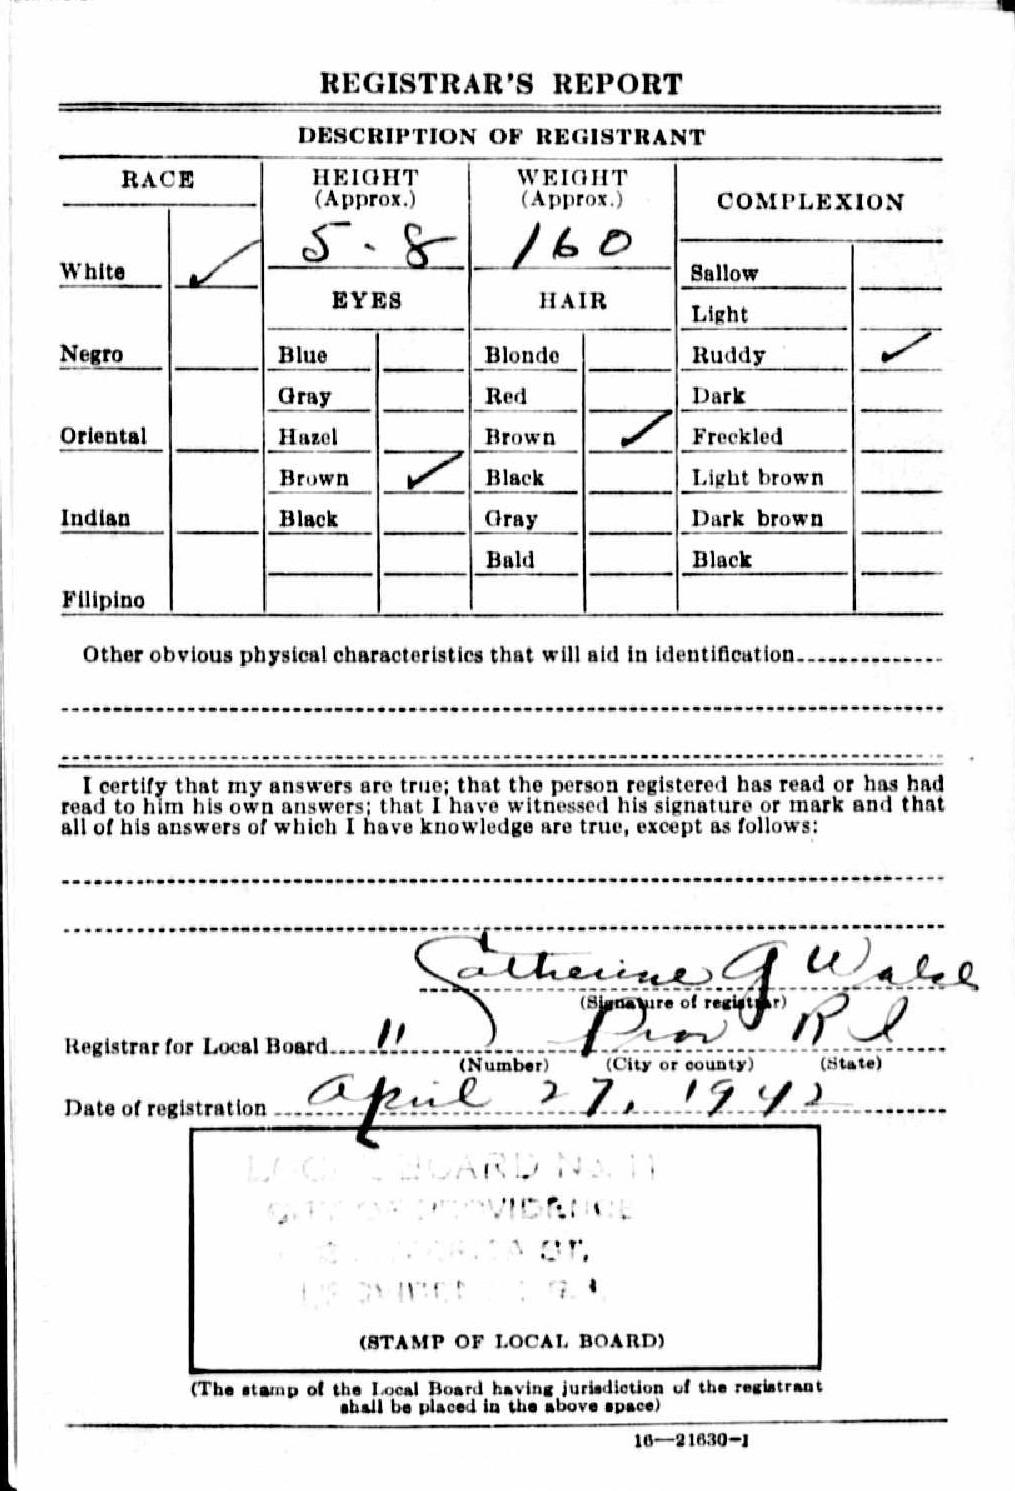 REGISTRAR'S REPORT
DESCRIPTION OF REGISTRANT
RACE
HEIGHT
(Approx.)
5-8
WEIGHT
(Approx.)
160
COMPLEXION
White ✓
Negro
Oriental
Indian
Filipino
EYES
Blue
Gray
Hazel
Brown ✓
Black
HAIR
Blonde
Red
Brown ✓
Black
Gray
Bald
Sallow
Light
Ruddy ✓
Dark
Freckled
Light brown
Dark brown
Black
Other obvious physical characteristics that will aid in identification
I certify that my answers are true; that the person registered has read or has had
read to him his own answers; that I have witnessed his signature or mark and that
all of his answers of which I have knowledge are true, except as follows:
Catherine G Walsh
(Signature of registrar)
Registrar for Local Board 11 Prov R I
(Number) (City or county) (State)
Date of registration April 27, 1942
BOARD No. 11
PROVIDENCE
ST.
(STAMP OF LOCAL BOARD)
(The stamp of the Local Board having jurisdiction of the registrant
shall be placed in the above space)
16—21630-1